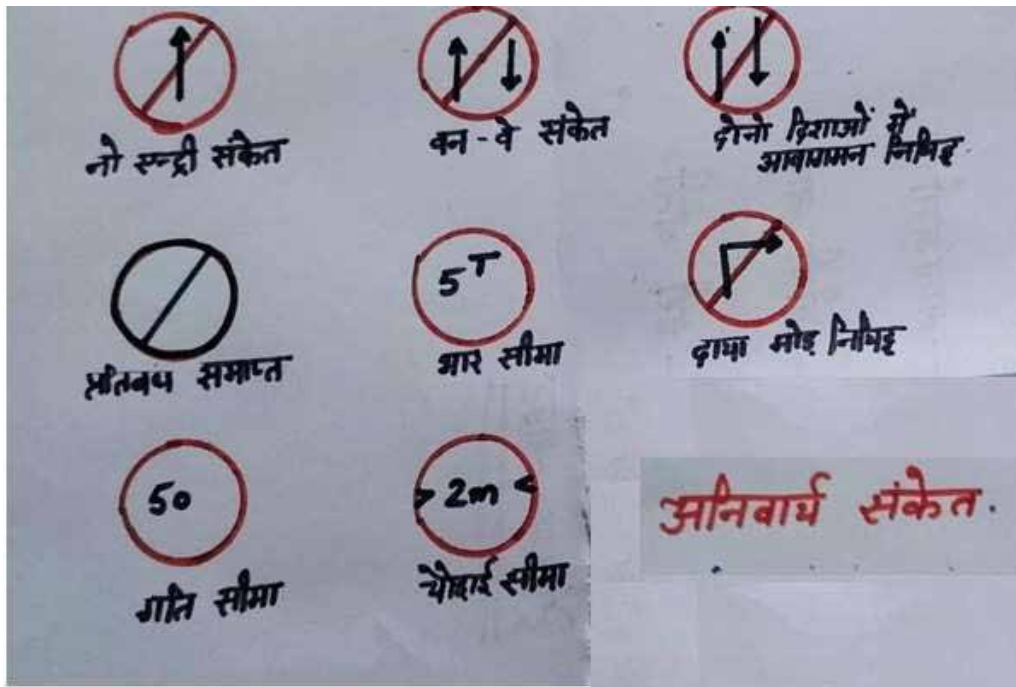 नो एन्ट्री संकेत
वन-वे संकेत
दोनो दिशाओं में
आवागमन निषिद्ध
5T
प्रतिबंध समाप्त
भार सीमा
दाया मोड़ निषिद्ध
50
2m
गति सीमा
चौड़ाई सीमा
अनिवार्य संकेत.